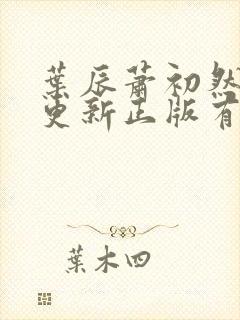 葉辰蕭初然
更新正版有
葉木四